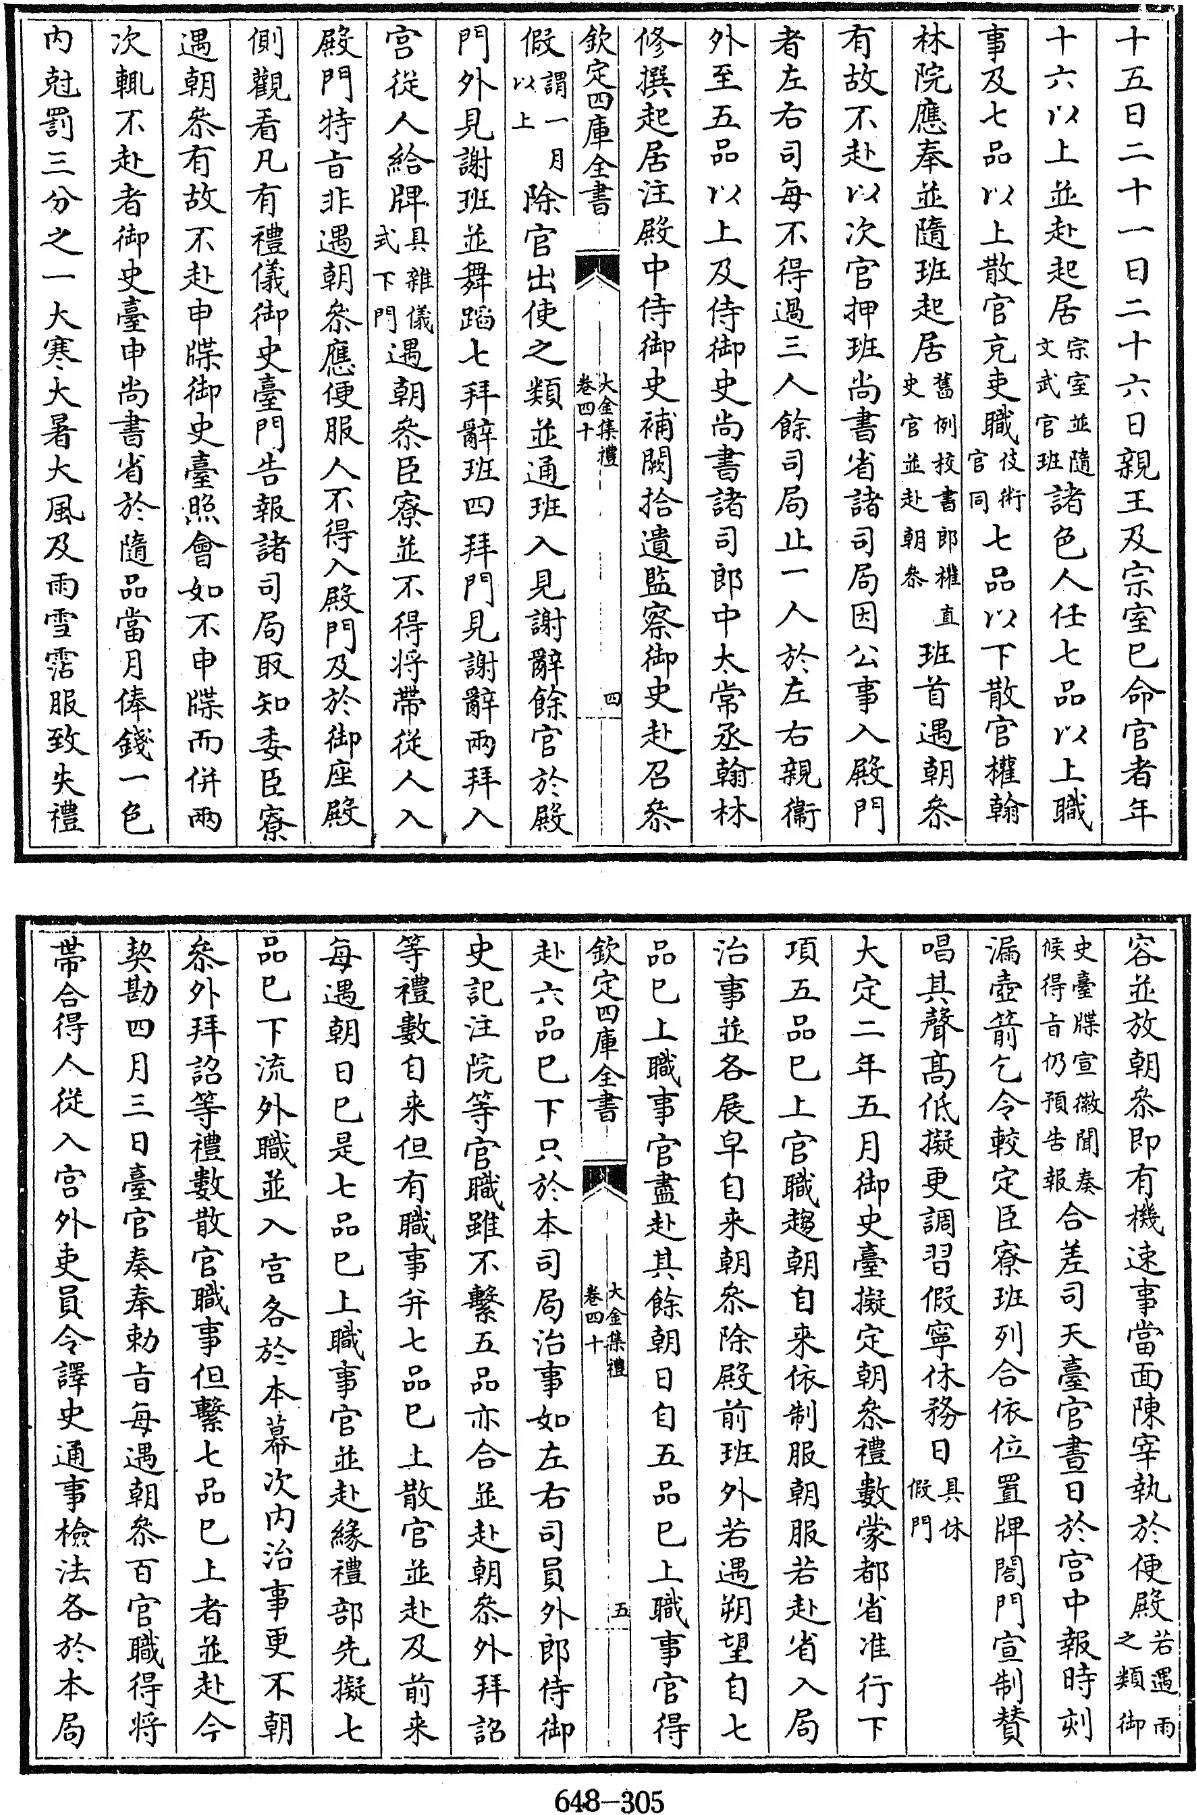 十五日二十一日二十六日親王及宗室已命官者年
十六以上並赴起居宗室並隨文武官班諸色人任七品以上職
事及七品以上散官充吏職伎術官同七品以下散官權翰
林院應奉並隨班起居舊例校書郎權直史官並赴朝叅班首遇朝叅
有故不赴以次官押班尚書省諸司局因公事入殿門
者左右司每不得過三人餘司局止一人於左右親衞
外至五品以上及侍御史尚書諸司郎中太常丞翰林
修撰起居注殿中侍御史補闕拾遺監察御史赴召叅
欽定四庫全書
大金集禮
卷四十
四
假謂一月以上除官出使之類並通班入見謝辭餘官於殿
門外見謝班並舞蹈七拜辭班四拜門見謝辭兩拜入
宮從人給牌具雜儀式下門遇朝叅臣寮並不得將帶從人入
殿門特旨非遇朝叅應便服人不得入殿門及於御座殿
側觀看凡有禮儀御史臺門告報諸司局取知委臣寮
遇朝叅有故不赴申牒御史臺照會如不申牒而併兩
次輒不赴者御史臺申尚書省於隨品當月俸錢一色
內尅罰三分之一大寒大暑大風及雨雪霑服致失禮
容並放朝叅即有機速事當面陳宰執於便殿若遇雨之類御
史臺牒宣徽聞奏候得旨仍預告報合差司天臺官晝日於宮中報時刻
漏壺箭乞令較定臣寮班列合依位置牌閤門宣制贊
唱其聲高低擬更調習假寧休務日具休假門
大定二年五月御史臺擬定朝叅禮數蒙都省准行下
項五品已上官職趨朝自来依制服朝服若赴省入局
治事並各展皁自来朝叅除殿前班外若遇朔望自七
品已上職事官盡赴其餘朝日自五品已上職事官得
欽定四庫全書
大金集禮
卷四十
五
赴六品已下只於本司局治事如左右司員外郎侍御
史記注院等官職雖不繫五品亦合並赴朝叅外拜詔
等禮數自来但有職事并七品已上散官並赴及前来
每遇朝日已是七品已上職事官並赴緣禮部先擬七
品已下流外職並入宮各於本幕次內治事更不朝
叅外拜詔等禮數散官職事但繫七品已上者並赴今
契勘四月三日臺官奏奉勅旨每遇朝叅百官職得將
帶合得人從入宮外吏員令譯史通事檢法各於本局
648—305